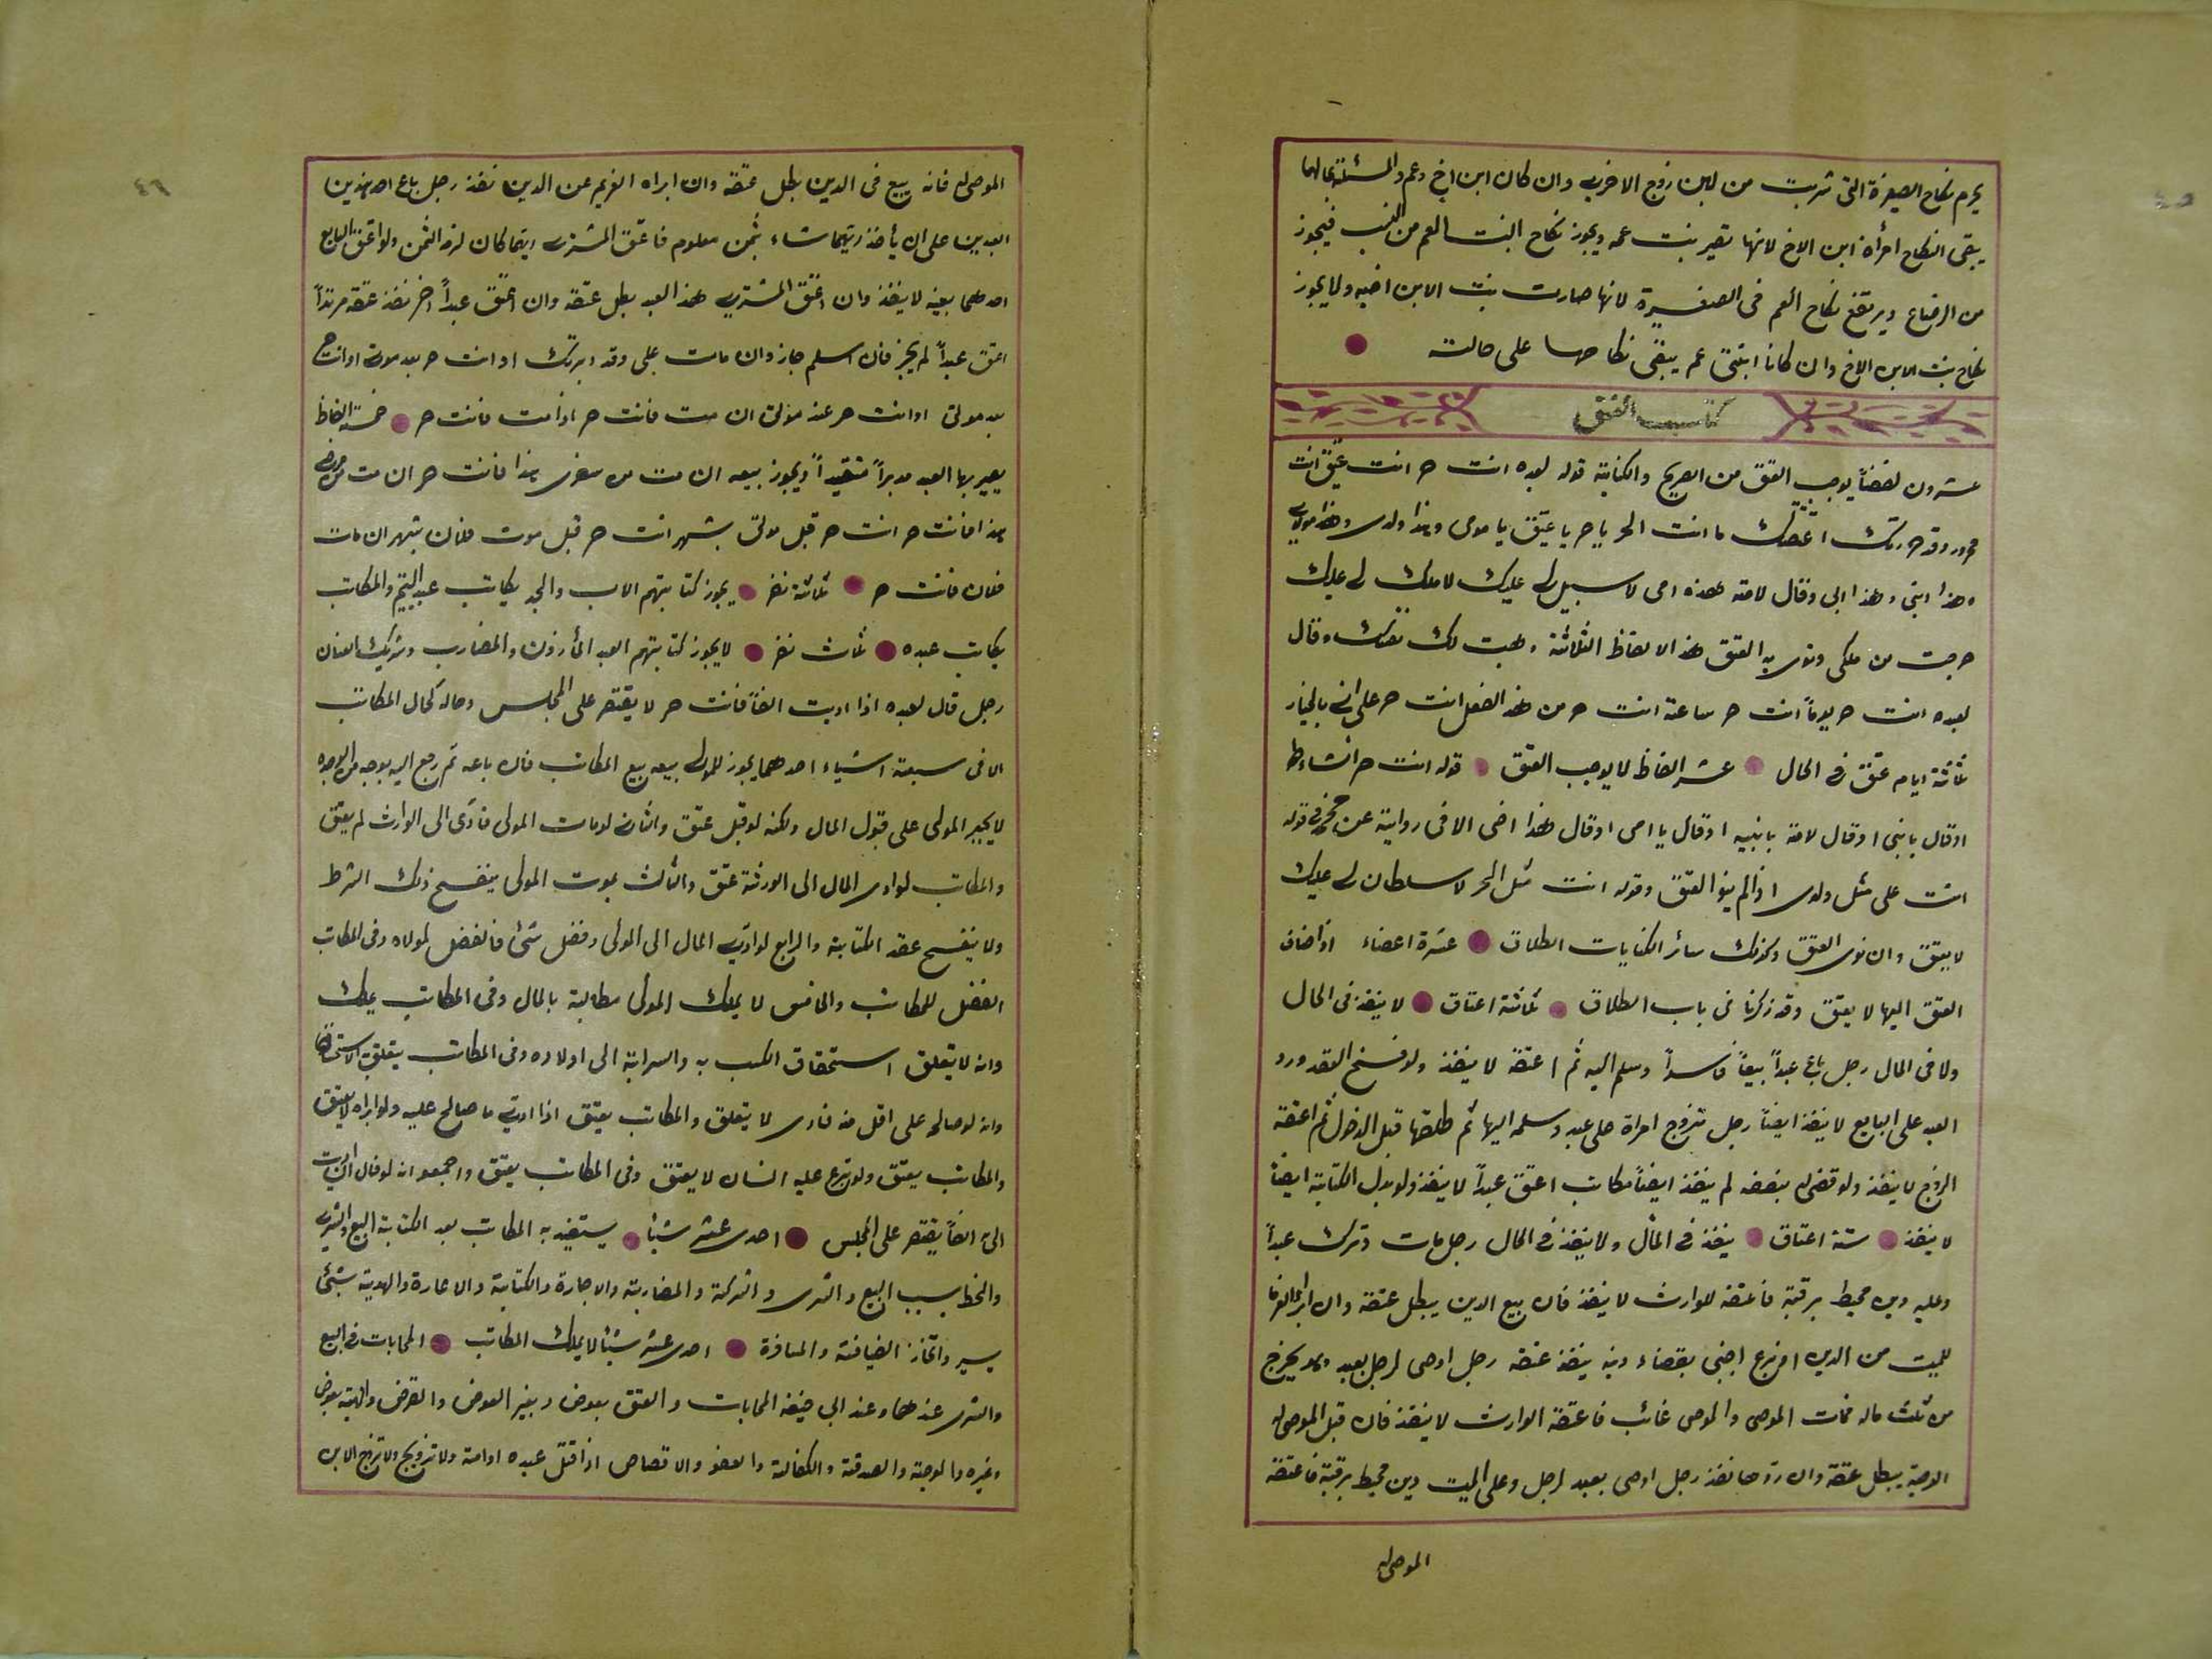 ٤٥
يحرم نكاح الصغيرة التى شربت من لبن زوج الاخرى وان كان ابن اخ وعم والمسئلة بحالها
يبقى النكاح امرأة ابن الاخ لانها تصير بنت عمه ويجوز نكاح البنت العم من النسب فيجوز
من الرضاع ويرتفع نكاح العم فى الصغيرة لانها صارت بنت الابن اخيه ولا يجوز
نكاح بنت الابن الاخ وان كانا ابنتى عم يبقى نكاحها على حالته
كتاب العتق
عشرون لفضاً يوجب العتق من الصريح والكناية قوله لعبده انت حر انت عتيق انت
محرر وقد حررتك اعتقتك ما انت الحر يا حر يا عتيق يا مولى وهذا ولدى وهذا مولاى
وهذا ابنى وهذا ابى وقال لامته هذه امى لا سبيل لى عليك لا ملك لى عليك
خرجت من ملكى ونوى به العتق هذه الالفاظ الثلاثة وهبت لك نفسك وقال
لعبده انت حر يوماً انت حر ساعة انت حر من هذا الفعل انت حر على انى بالخيار
ثلثة ايام عتق فى الحال عشر الفاظ لا يوجب العتق قوله انت حر انشاء الله
اوقال يا بنى اوقال لامته يا بنيه اوقال يا امى اوقال هذا اخى الا فى رواية عن محمد فى قوله
انت على مثل ولدى اذا لم ينو العتق وقوله انت مثل الحر لا سلطان لى عليك
لا يعتق وان نوى العتق وكذلك سائر الكنايات الطلاق عشرة اعضاء اذا اضاف
العتق اليها لا يعتق وقد ذكرنا فى باب الطلاق ثلاثة اعتاق لا ينفذ فى الحال
ولا فى المال رجل باع عبداً بيعاً فاسداً وسلم اليه ثم اعتقه لا ينفذ ولو فسخ العقد ورد
العبد على البايع لا ينفذ ايضاً رجل تزوج امراة على عبد وسلمه اليها ثم طلقها قبل الدخول ثم اعتقه
الزوج لا ينفذ ولو قضى له بنصفه لم ينفذ ايضاً مكاتب اعتق عبداً لا ينفذ ولو بدل الكتابة ايضاً
لا ينفذ ستة اعتاق ينفذ فى المأل ولا ينفذ فى الحال رجل مات وترك عبداً
وعليه دين محيط برقبته فاعتقه للوارث لا ينفذ فان بيع الدين يبطل عتقه وان ابراء الغرماء
للميت من الدين او تبرع اجنبى بقضاء دينه ينفذ عتقه رجل اوصى لرجل بعبد وهو يخرج
من ثلث ماله فمات الموصى والموصى غائب فاعتقه الوارث لا ينفذ فان قبل الموصى له
الوصية يبطل عتقه وان ردها نفذ رجل اوصى بعبد لرجل وعلى الميت دين محيط برقبته فاعتقه
الموصى له
٤٦
الموصى له فانه بيع فى الدين بطل عتقه وان ابراه الغريم عن الدين نفذ رجل باع احد هذين
العبدين على ان يأخذ ايتهما شاء بثمن معلوم فاعتق المشترى ايتهما كان لزمه الثمن ولو اعتق البايع
احدهما بعينه لا ينفذ وان اعتق المشترى هذا العبد بطل عتقه وان اعتق عبداً اخر نفذ عتقه مرتداً
اعتق عبداً لم يجز فان اسلم جاز وان مات على وقد دبرتك او انت حر بعد موت او انت حر
بعد موتى او انت حر عند موتى ان مت فانت حر اذا مت فانت حر خمسة الفاظ
يصير بها العبد مدبراً مقيداً ويجوز بيعه ان مت من سفرى هذا فانت حر ان مت من مرضى
هذا فانت حر انت حر قبل موتى بشهر انت حر قبل موت فلان بشهر ان مات
فلان فانت حر ثلثة نفر يجوز كتابتهم الاب والجد يكاتب عبد اليتيم والمكاتب
يكاتب عبده ثلث نفر لا يجوز كتابتهم العبد المأذون والمضارب وشريك العنان
رجل قال لعبده اذا اديت الفاً فانت حر لا يقتصر على المجلس وحاله كحال المكاتب
الا فى سبعة اشياء احدهما يجوز للمولى بيعه بيع المكاتب فان باعه ثم رجع اليه بوجه من الوجوه
لا يجبر المولى على قبول المال ولكنه لو قبل عتق والثانى لو مات المولى فادى الى الوارث لم يعتق
والمكاتب لو ادى المال الى الورثة عتق والثالث بموت المولى ينفسخ ذلك الشرط
ولا ينفسخ عقد الكتابة والرابع لو ادى المال الى المولى وفضل شئ فالفضل لمولاه وفى المكاتب
الفضل للمكاتب والخامس لا يملك المولى مطالبته بالمال وفى المكاتب يملك
وانه لا يتعلق استحقاق الكسب به والسراية الى اولاده وفى المكاتب يتعلق به الاستحقاق
وانه لو صالحه على اقل منه فادى لا يتعلق والمكاتب يعتق اذا ادى ما صالح عليه ولو ابراه لا يعتق
والمكاتب يعتق ولو تبرع عليه انسان لا يعتق وفى المكاتب يعتق واجمعوا انه لو قال ان اديت
الى الفاً يقتصر على المجلس احدى عشر شيئاً يستفيد به المكاتب بعد الكتابة البيع والشرى
والخط بسبب البيع والشرى والشركة والمضاربة والاجارة والكتابة والاعارة والهدية بشئ
يسير واتخاذ الضيافة والمسافرة احدى عشر شيئاً لا يملك المكاتب المحابات فى البيع
والشرى عندهما وعند ابى حنيفة المحابات والعتق بعوض وبغير العوض والقرض والهبة بعوض
وغيره والوصية والصدقة والكفالة والعفو والاقصاص اذا قتل عبده او امته ولا تزويج ولا تزوج الابن